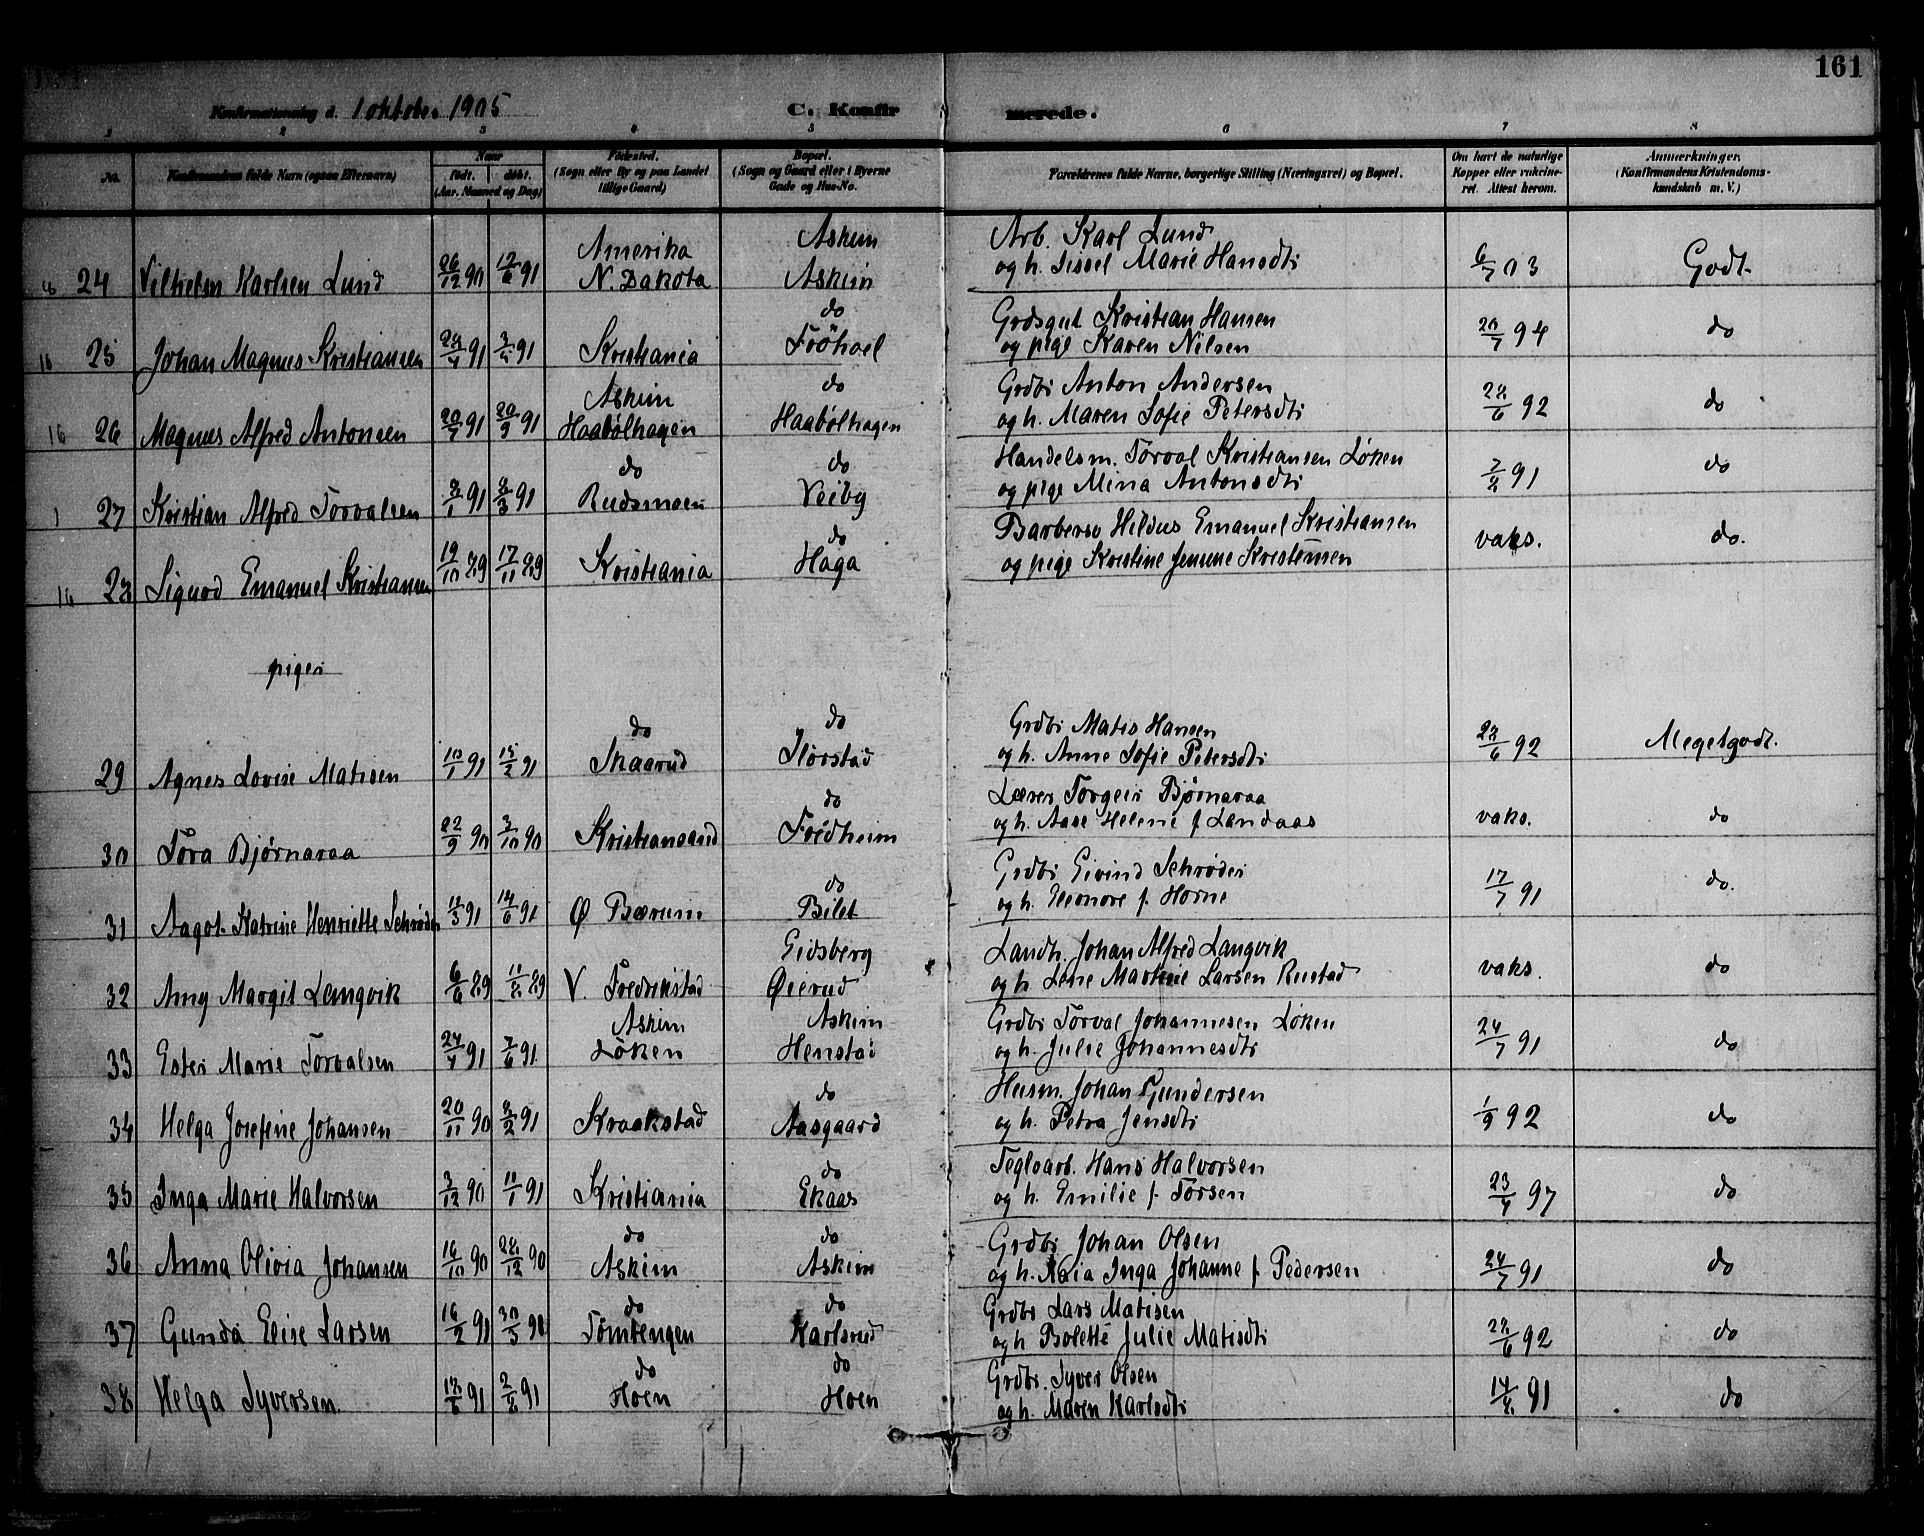 161
Konfirmationsdag d. 1 oktober 1905 C. Konfirmerede.
1 2 3 4 5 6 7 8
No. Konfirmandens fulde Navn (ogsaa Efternavn) Naar født. døbt. (Aar, Maaned og Dag) Fødested. (Sogn eller By og paa Landet tillige Gaard) Bopæl. (Sogn og Gaard eller i Byerne Gade og Hus-No. Forældrenes fulde Navne, borgerlige Stilling (Næringsvei) og Bopæl. Om havt de naturlige Kopper eller vakcineret. Attest herom. Anmærkninger. (Konfirmandens Kristendomskundskab m. V.)
Amerika Askim Arb. Karl Lund
24 Vilhelm Karlsen Lund 26/12 90 N. Dakota Askim og h. Sissel Marie Hansdtr 6/7 03 Godt.
do Grdsgut Kristian Hansen
16 25 Johan Magnus Kristiansen Kristiania Fröhoel og pige Karen Nilsen 20/7 94 do
Askim do Grdbr Anton Andersen
16 26 Magnus Alfred Antonsen 20/7 91 20/9 91 Haabølhagen Haabølhagen og h. Maren Sofie Petersdtr 28/6 92 do
do do Handelsm. Torval Kristiansen Løken
1 27 Kristian Alfred Torvalsen 8/1 91 8/3 91 Rudsmoen Veiby og pige Mina Antonsdtr 7/8 91 do
do Barbersv Hildus Emanuel Kristiansen
16 28 Sigurd Emanuel Kristiansen 19/10 89 17/11 89 Kristiania Haga og pige Kristine Jemine Kristensen vaks. do.
piger
do do Grdbr Matis Hansen
29 Agnes Lovise Matisen 10/1 91 15/2 91 Skaarud Hørstad og h. Anne Sofie Petersdtr 28/6 92 Megetgodt.
do Lærer Torgeir Bjørnaraa
30 Tora Bjørnaraa 22/9 90 3/10 90 Kristianssand Fredheim og h. Aase Helene f. Landaas vaks. do
do Grdbr Eivind Schrøder
31 Aagot Katrine Henriette Schrøder 11/3 91 14/6 91 Ø Bærum Bilet og h. Eleonore f. Horne 17/7 91 do.
Eidsberg Landh. Johan Alfred Langvik
32 Amy Margit Langvik 6/6 89 11/8 89 V. Fredrikstad Øierud og h Lene Martine Larsen Rustad vaks. do
Askim Askim Grdbr Torval Johannesen Løken
33 Ester Marie Torvalsen 24/4 91 7/6 91 Løken Henstad og h. Julie Johannesdtr 24/7 91 do
do Husm. Johan Gundersen
34 Helga Josefine Johansen 20/11 90 8/2 91 Kraakstad Aasgaard og h. Petra Jensdtr 1/9 92 do
do Tegloarb. Hans Halvorsen
35 Inga Marie Halvorsen 3/12 90 11/1 91 Kristiania Ekaas og h. Emilie f. Torsen 23/4 97 do
do do Grdbr Johan Olsen
36 Anna Olivia Johansen 16/10 90 28/12 90 Askim Askim og h. Maia Inga Johanne f. Pedersen 24/7 91 do
do do Grdbr Lars Matisen
37 Gunda Elise Larsen 16/2 90 30/3 90 Tomtengen Karlsrud og h Bolette Julie Matisdtr 28/6 92 do
do do Grdbr. Syver Olsen
38 Helga Syversen. 2/8 91 Hoen Hoen og h. Maren Karlsdtr 14/8 91 do